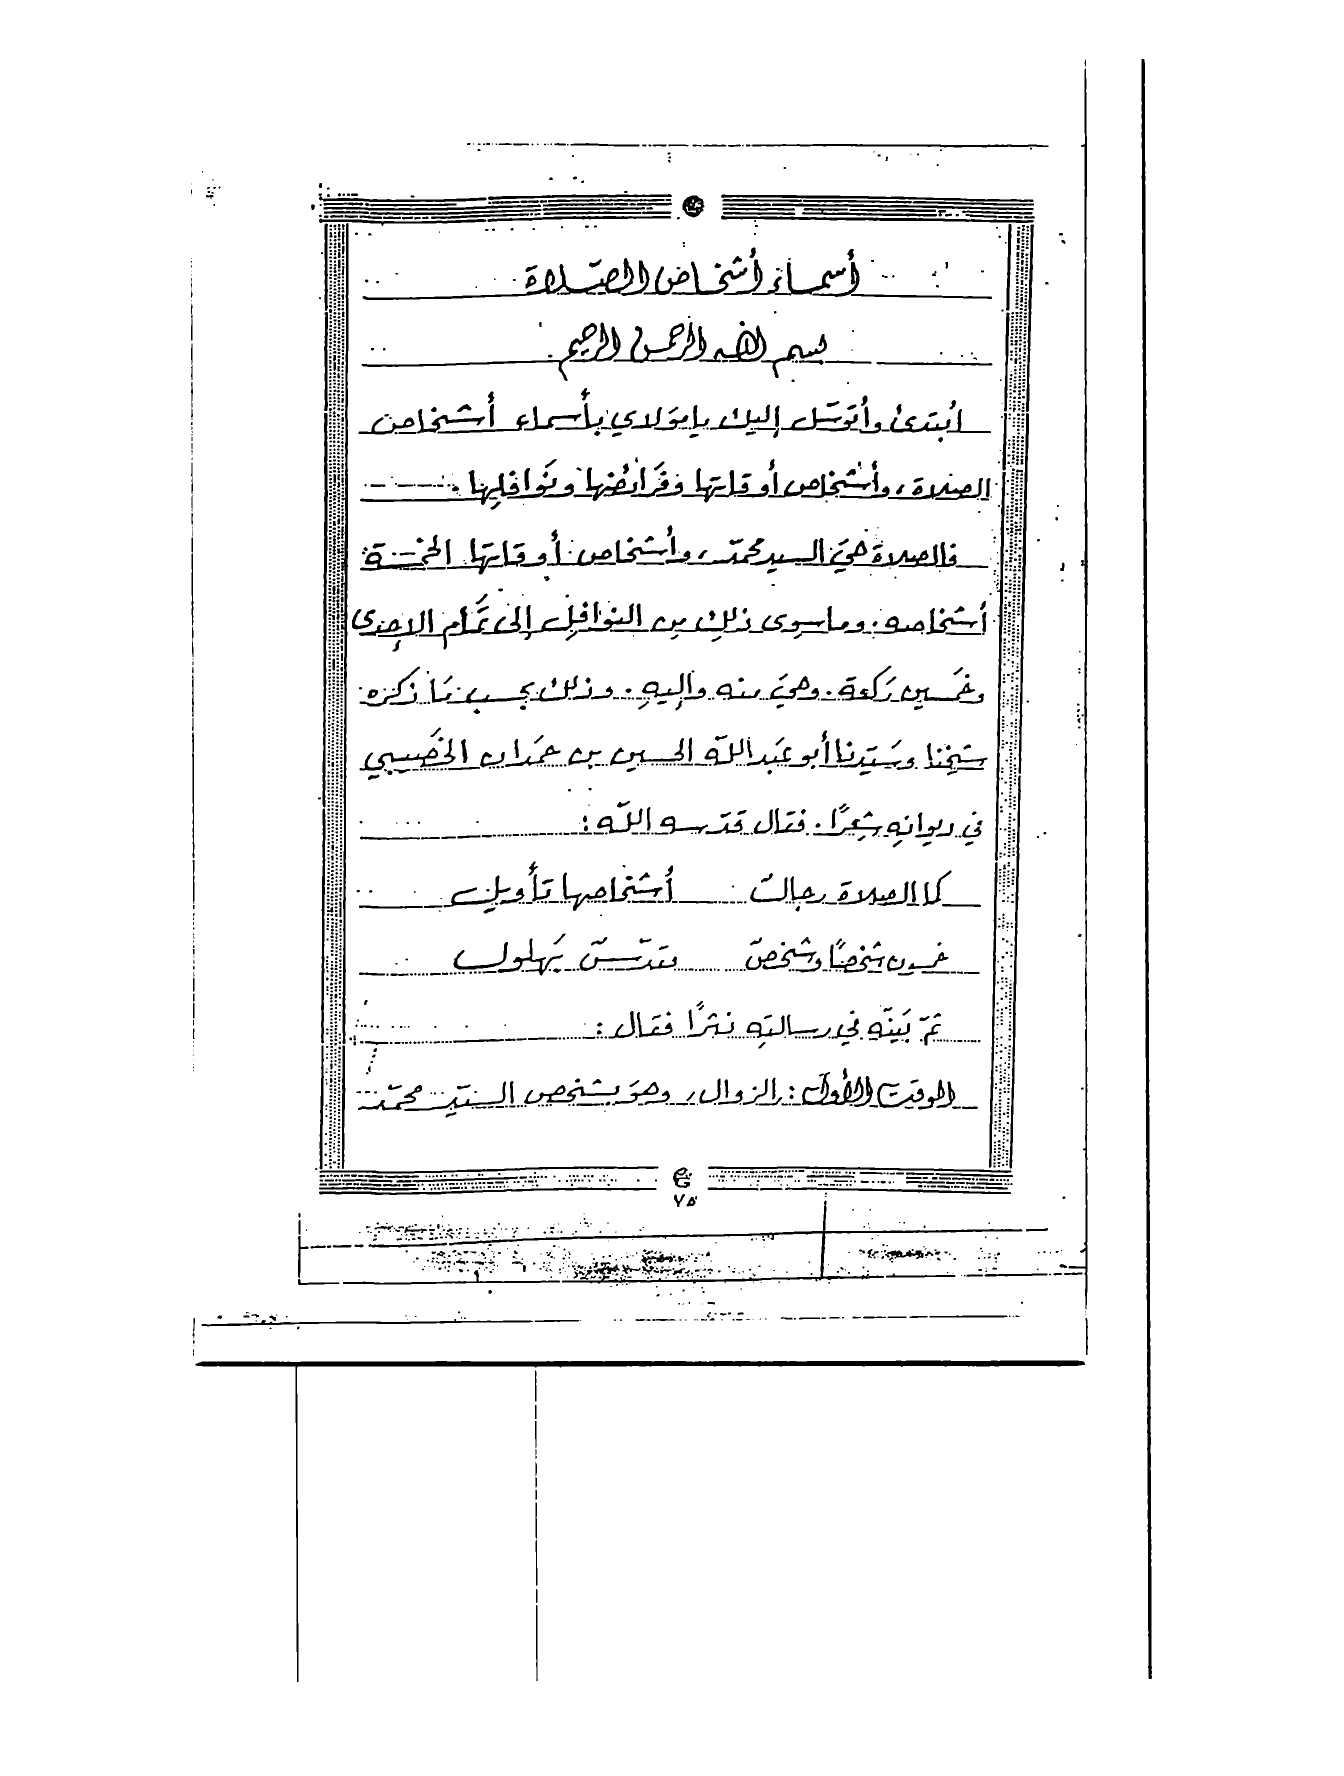 أسماء أشخاص الصّلاة
بسم الله الرحمن الرحيم.
ابتدئ وأتوسّل إليك يا مولاي بأسماء أشخاص
الصلاة، وأشخاص أوقاتها وفرائضها ونوافلها.
فالصلاة هي السيد محمّد، وأشخاص أوقاتها الخمسة
أشخاصه. وما سوى ذلك من النوافل إلى تمام الإحدى
وخمسين ركعة. وهي منه وإليه. وذلك بحسب ما ذكره
شيخنا وسيّدنا أبو عبد اللّه الحسين بن حمدان الخصيبي
في ديوانه شعرًا. فقال قدّسه اللّه:
كما الصلاة رجالٌ أشخاصها تأويل
خمسون شخصًا وشخصٌ بهلول
ثمّ بيّنه في رسالته نثرًا فقال:
الوقت الأول: الزوال، وهو بشخص السيّد محمّد
٧٥